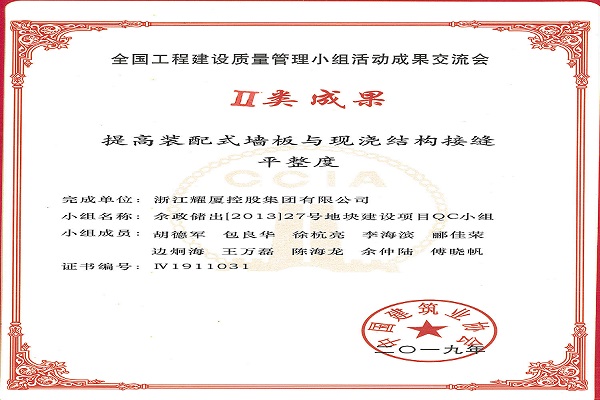 全国工程建设质量管理小组活动成果交流会
II类成果
提高装配式墙板与现浇结构接缝
平整度
CCIA
完成单位：浙江耀厦控股集团有限公司
小组名称：余政储出[2013]27号地块建设项目QC小组
小组成员：胡德军 包良华 徐杭亮 李海滨 郦佳荣
边炯海 王万磊 陈海龙 余仲陆 傅晓帆
证书编号：IV1911031
中国建筑业协会
二〇一九年